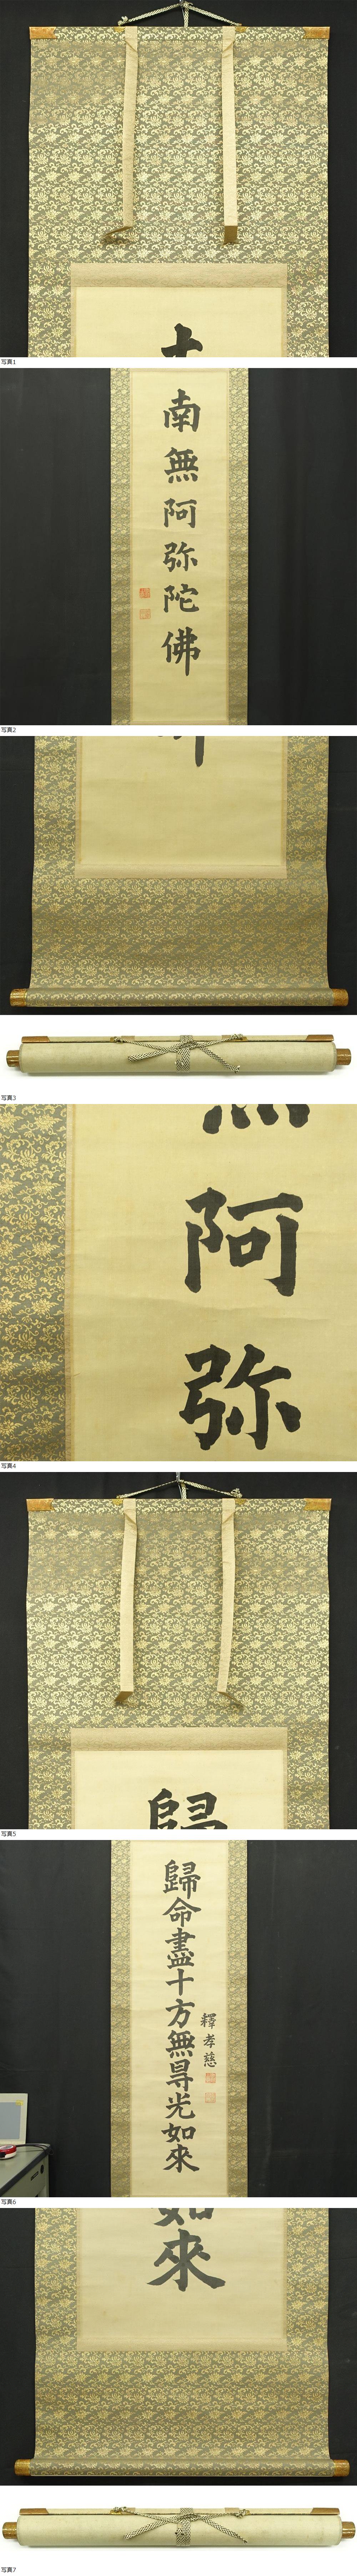 写真1
南無阿弥陀佛
写真2
写真3
阿
弥
写真4
歸
写真5
歸命盡十方無㝵光如來
釋孝慈
写真6
如
來
写真7